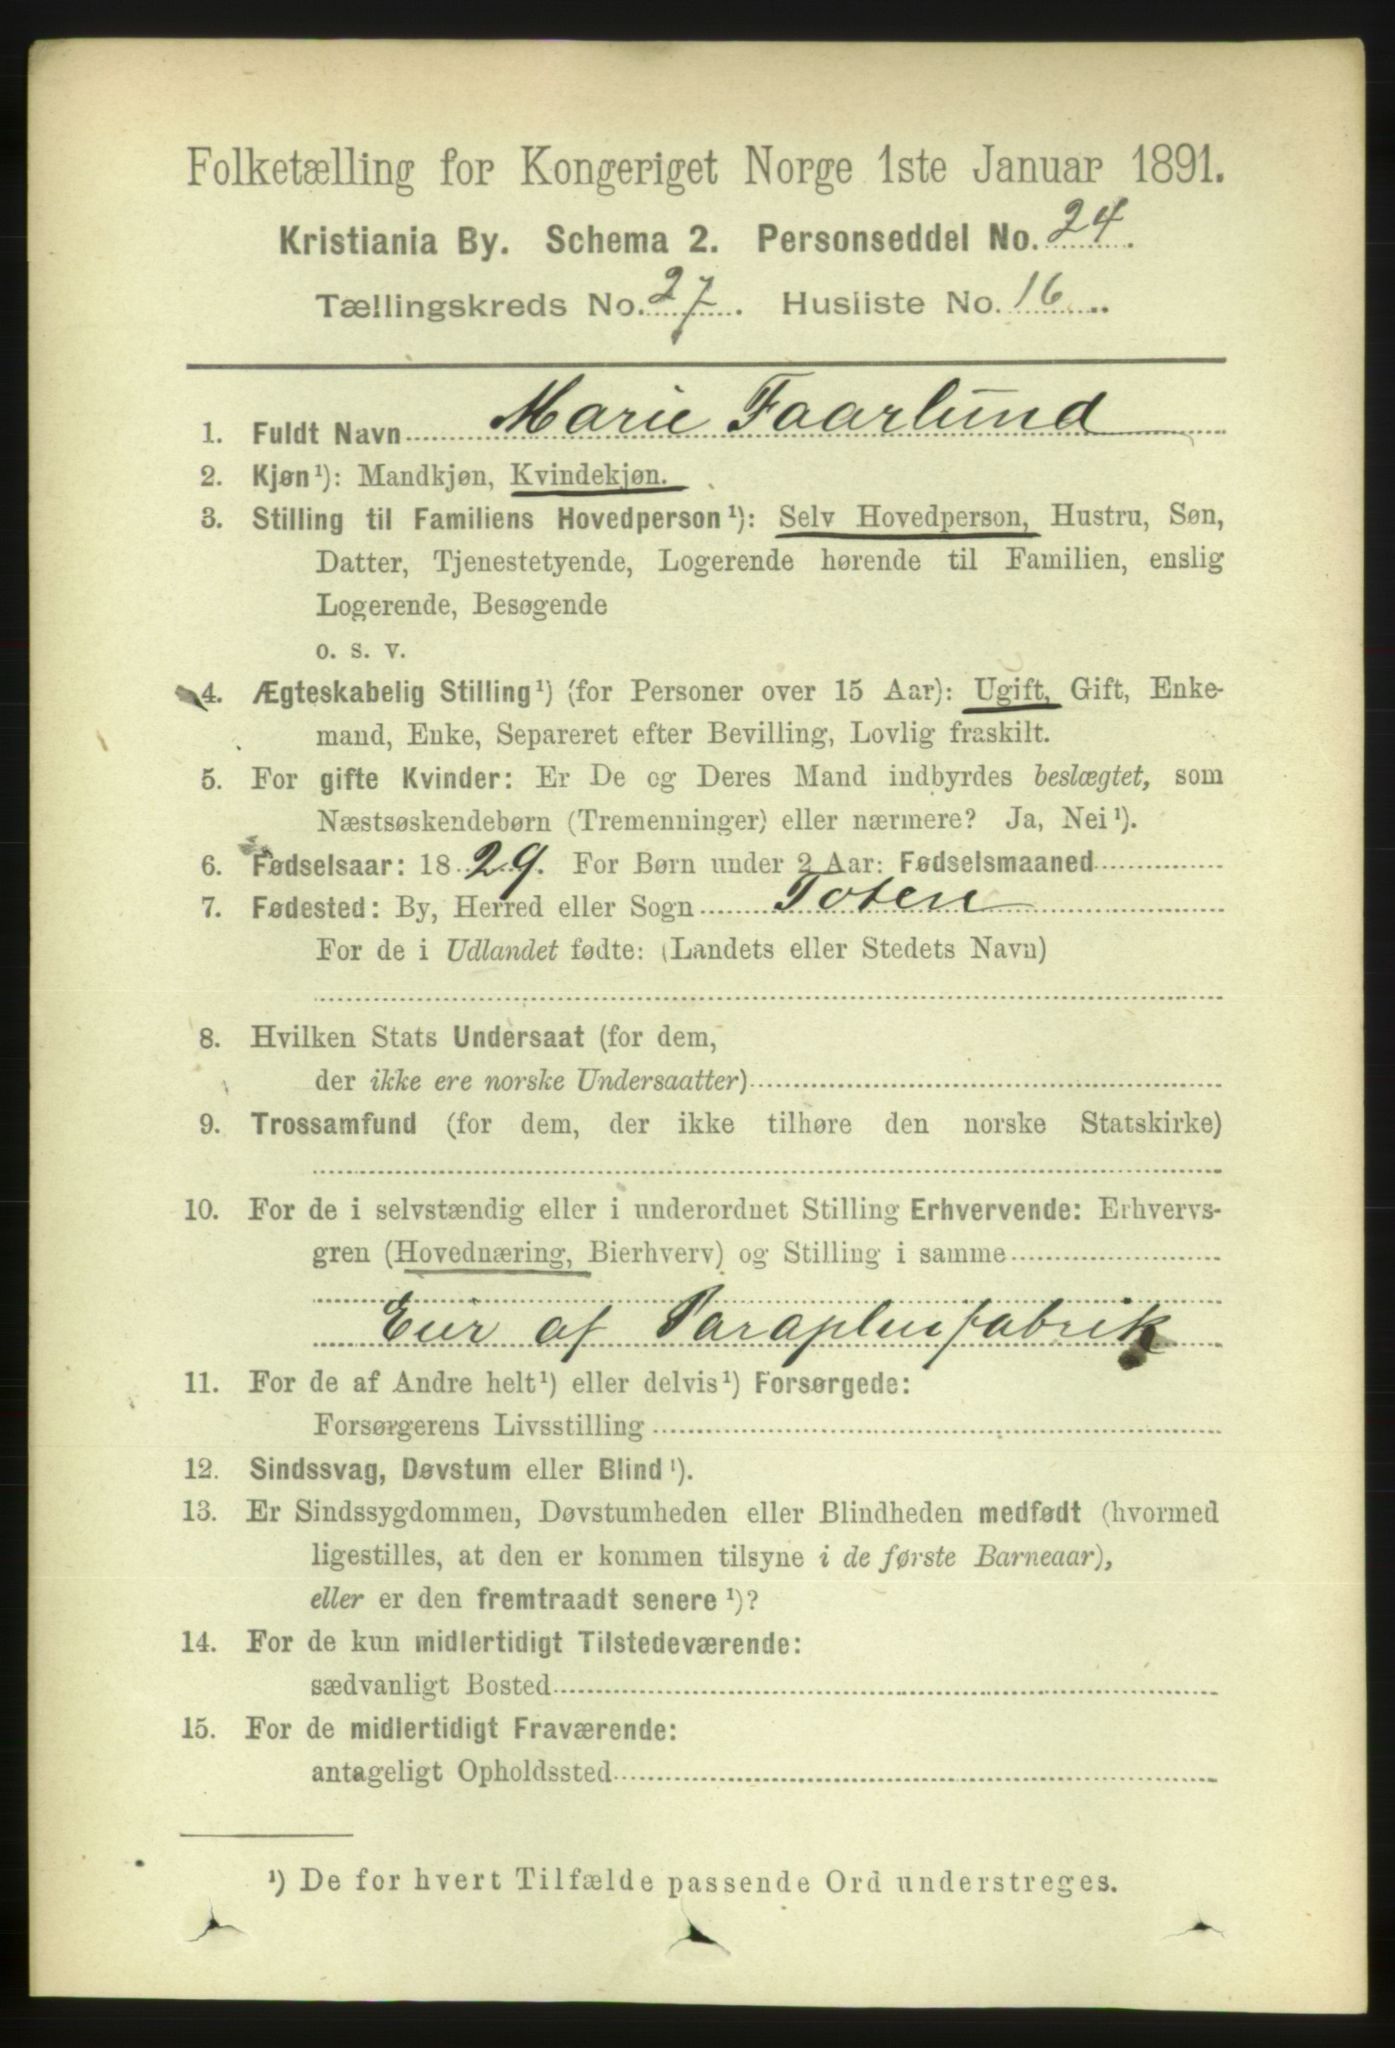 Folketælling for Kongeriget Norge 1ste Januar 1891.
Kristiania By. Schema 2. Personseddel No. 24.
Tællingskreds No. 27. Husliste No. 16
1. Fuldt Navn Marie Faarlund
2. Kjøn¹): Mandkjøn, Kvindekjøn.
3. Stilling til Familiens Hovedperson¹): Selv Hovedperson, Hustru, Søn,
Datter, Tjenestetyende, Logerende hørende til Familien, enslig
Logerende, Besøgende
o. s. v.
4. Ægteskabelig Stilling¹) (for Personer over 15 Aar): Ugift, Gift, Enke-
mand, Enke, Separeret efter Bevilling, Lovlig fraskilt.
5. For gifte Kvinder: Er De og Deres Mand indbyrdes beslægtet, som
Næstsøskendebørn (Tremenninger) eller nærmere? Ja, Nei¹).
6. Fødselsaar: 1829. For Børn under 2 Aar: Fødselsmaaned
7. Fødested: By, Herred eller Sogn Toten
For de i Udlandet fødte: (Landets eller Stedets Navn)
8. Hvilken Stats Undersaat (for dem,
der ikke ere norske Undersaatter)
9. Trossamfund (for dem, der ikke tilhøre den norske Statskirke)
10. For de i selvstændig eller i underordnet Stilling Erhvervende: Erhvervs-
gren (Hovednæring, Bierhverv) og Stilling i samme
Eier af Parapluifabrik
11. For de af Andre helt¹) eller delvis¹) Forsørgede:
Forsørgerens Livsstilling
12. Sindssvag, Døvstum eller Blind¹).
13. Er Sindssygdommen, Døvstumheden eller Blindheden medfødt (hvormed
ligestilles, at den er kommen tilsyne i de første Barneaar),
eller er den fremtraadt senere¹)?
14. For de kun midlertidigt Tilstedeværende:
sædvanligt Bosted
15. For de midlertidigt Fraværende:
antageligt Opholdssted
¹) De for hvert Tilfælde passende Ord understreges.